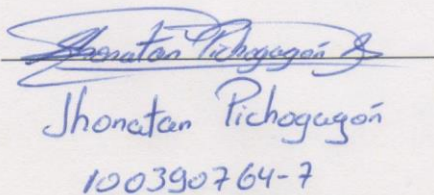 Jhonatan Pichogagón
Jhonatan Pichogagón
100390764-7